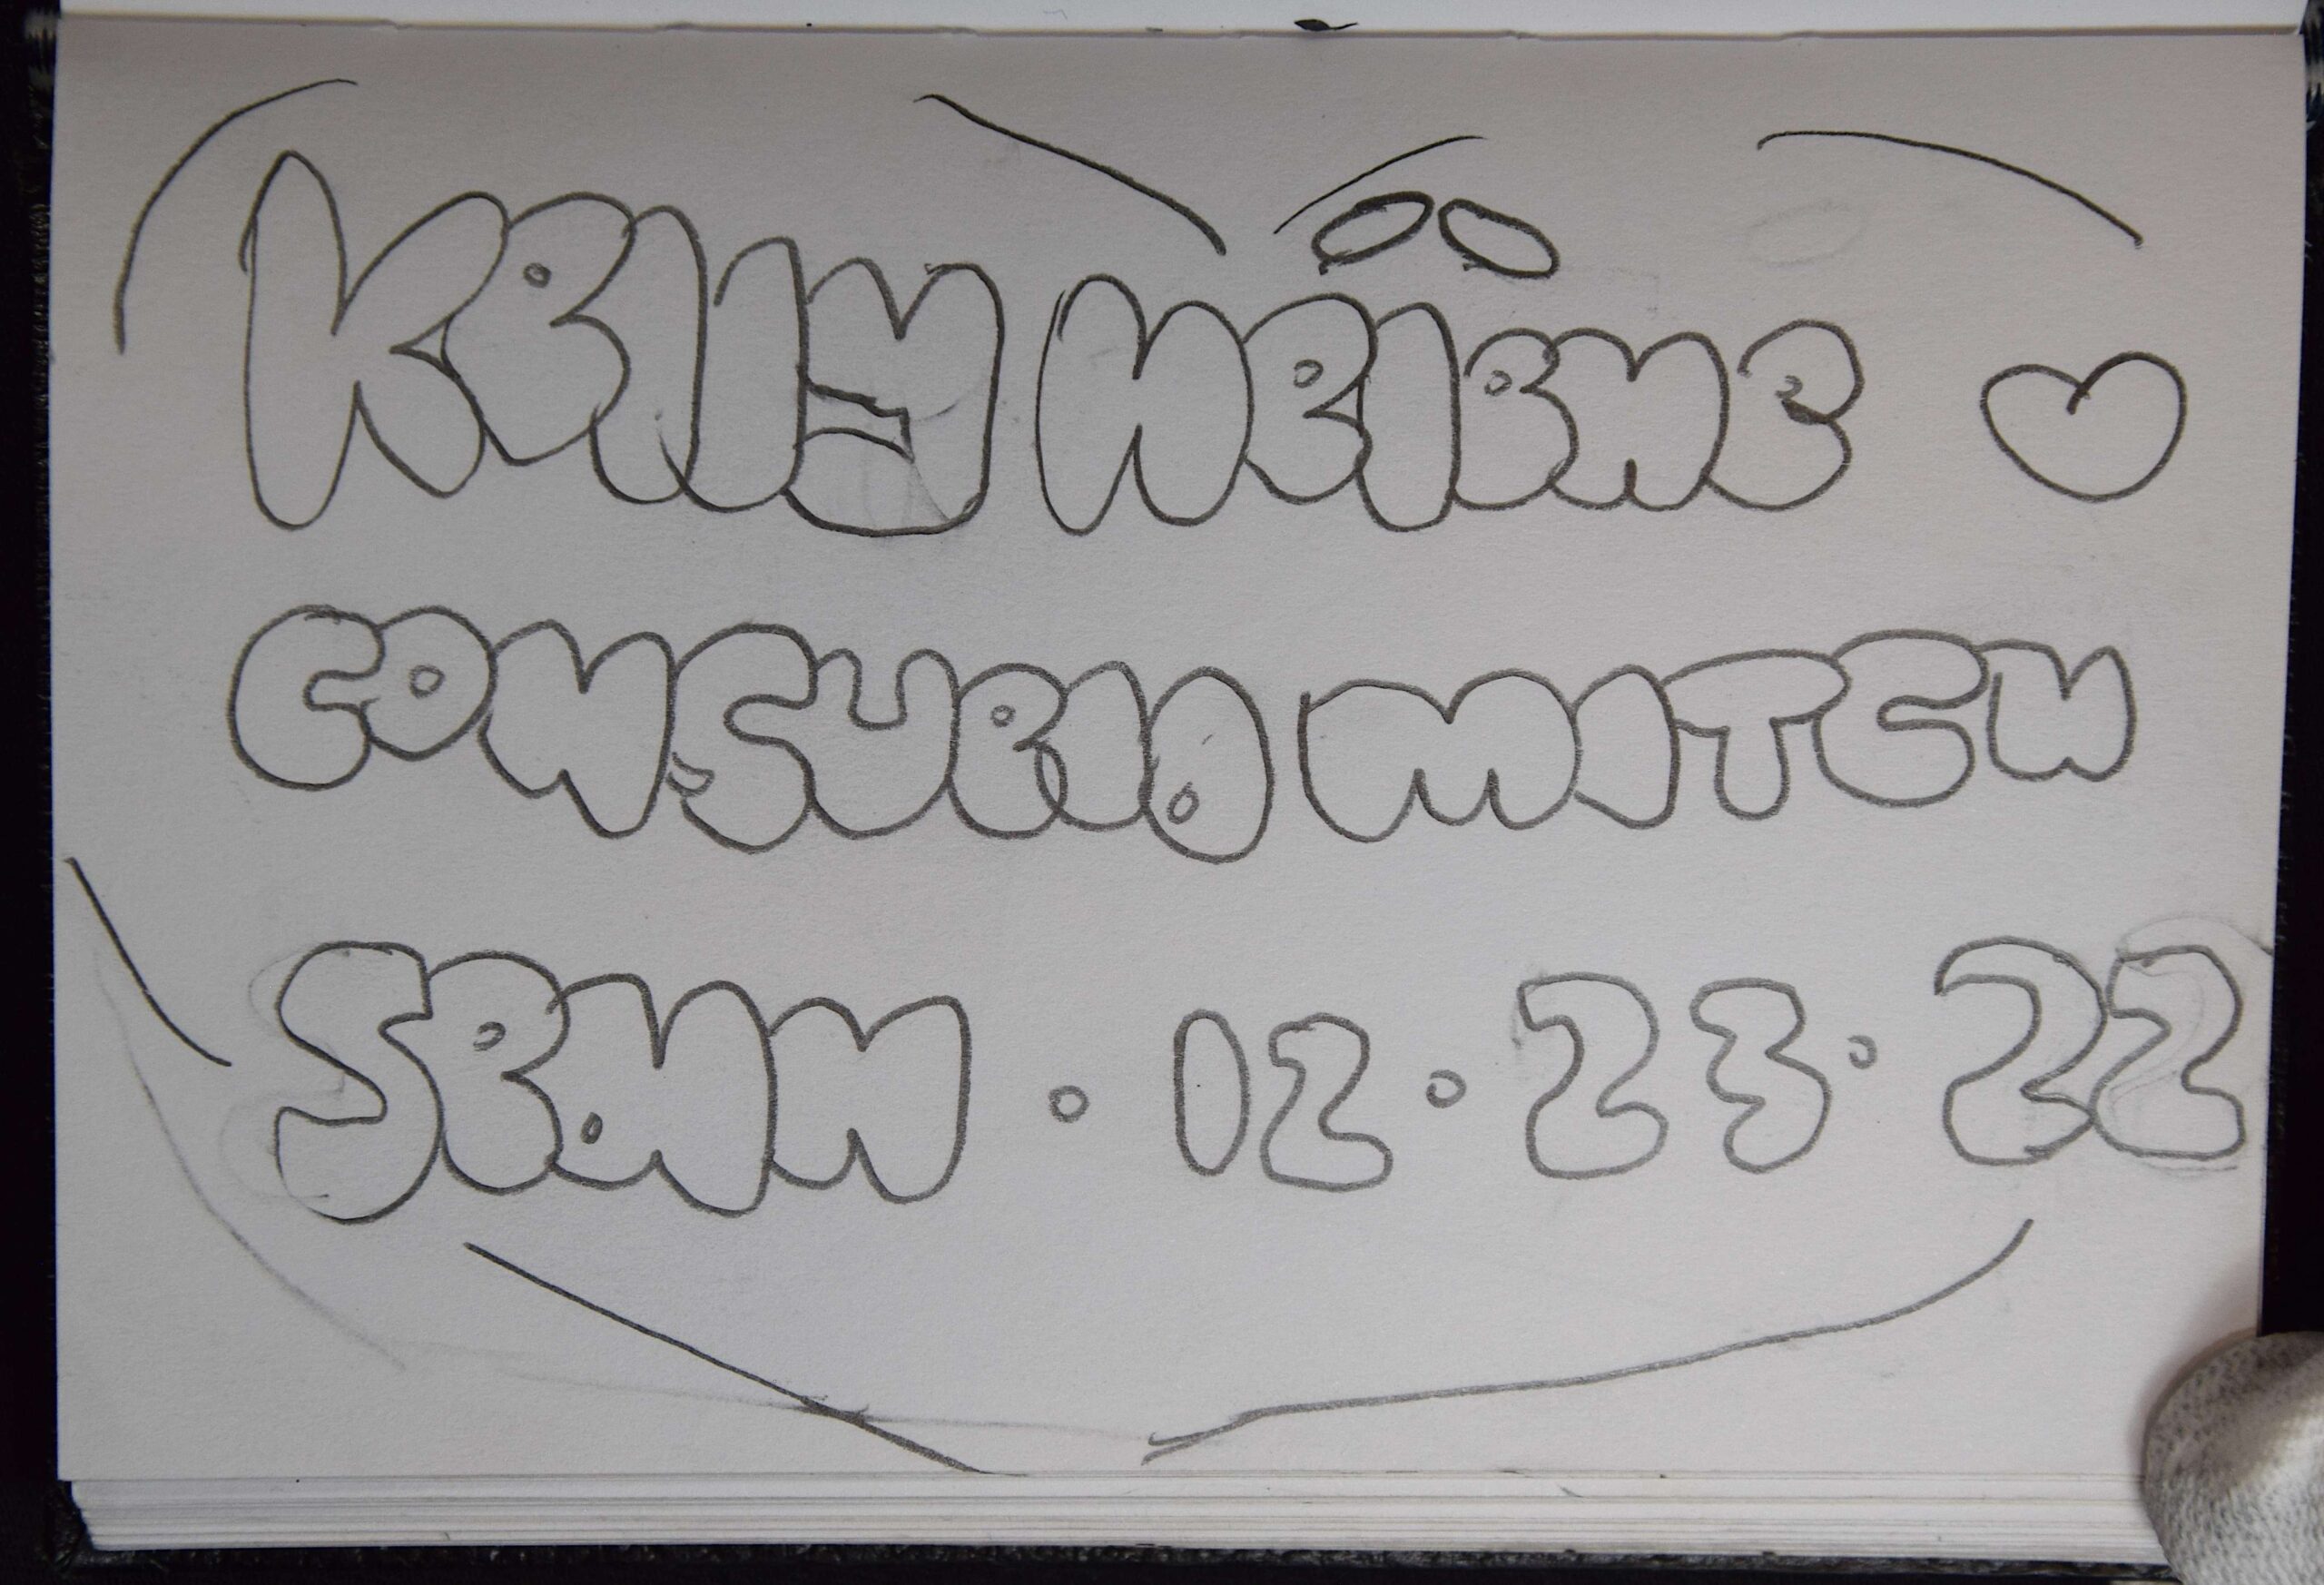 KEllY HElENE ♡
CONSUElA MITCH
· 12 · 23 · 22